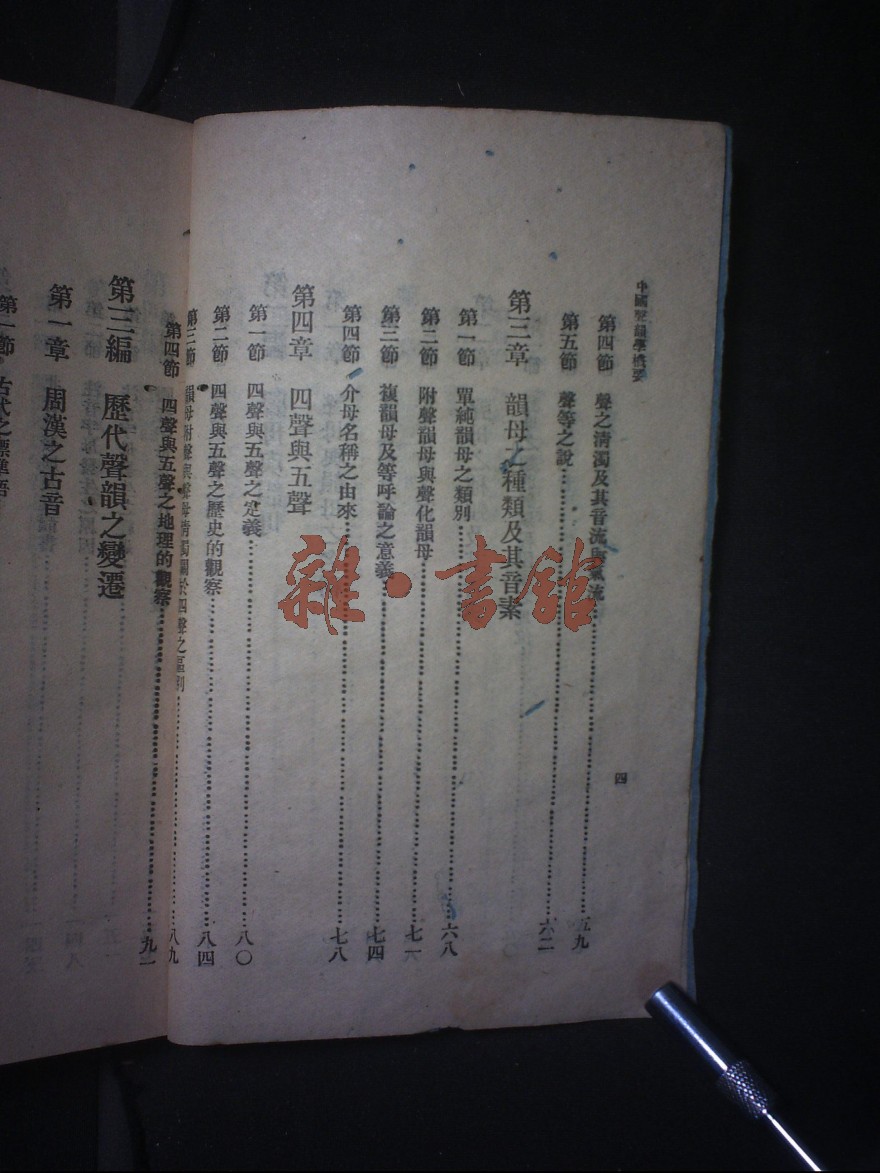 中國聲韻學概要
四
第四節 聲之清濁及其音流與氣流……五九
第五節 聲等之說……六二
第三章 韻母之種類及其音素
第一節 單純韻母之類別……六八
第二節 附聲韻母與聲化韻母……七一
第三節 複韻母及等呼論之意義……七四
第四節 介母名稱之由來……七八
第四章 四聲與五聲
第一節 四聲與五聲之定義……八〇
第二節 四聲與五聲之歷史的觀察……八四
第三節 韻母附聲與聲母清濁關於四聲之區別……八九
第四節 四聲與五聲之地理的觀察……九一
第三編 歷代聲韻之變遷
第一章 周漢之古音
第一節 古代之標準語
雜·書館